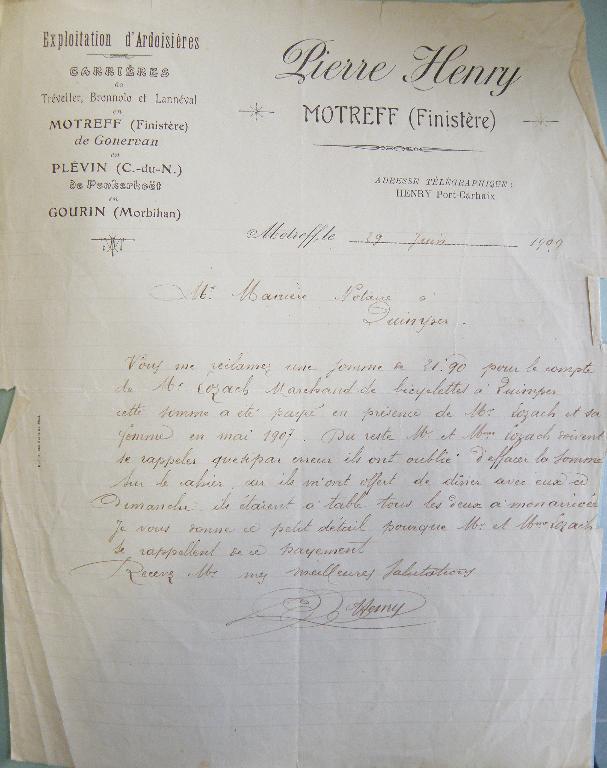 Exploitation d'Ardoisières
CARRIÈRES
de
Tréveller, Bronnolo et Lannéval
en
MOTREFF (Finistère)
de Gonervan
en
PLÉVIN (C.-du-N.)
de Penkerhoët
en
GOURIN (Morbihan)
Pierre Henry
MOTREFF (Finistère)
ADRESSE TÉLÉGRAPHIQUE:
HENRY Port-Carhaix
Motreff, le 29 Juin 1909
Mr Manière Notaire à
Quimper.
Vous me réclamez une somme de 21.90 pour le compte
de Mr Lozach Marchand de bicyclettes à Quimper
cette somme a eté payé en présence de Mr Lozach et sa
femme en mai 1907. Du reste Mr et Mme Lozach doivent
se rappeler que si par erreur ils ont oublié d'effacer la somme
sur le cahier car ils m'ont offert de diner avec eux ce
Dimanche ils étaient a table tous les deux a mon arrivée
Je vous donne ce petit détail pourque Mr et Mme Lozach
se rappellent de ce payement
Recevez Mr mes meilleures Salutations
P Henry